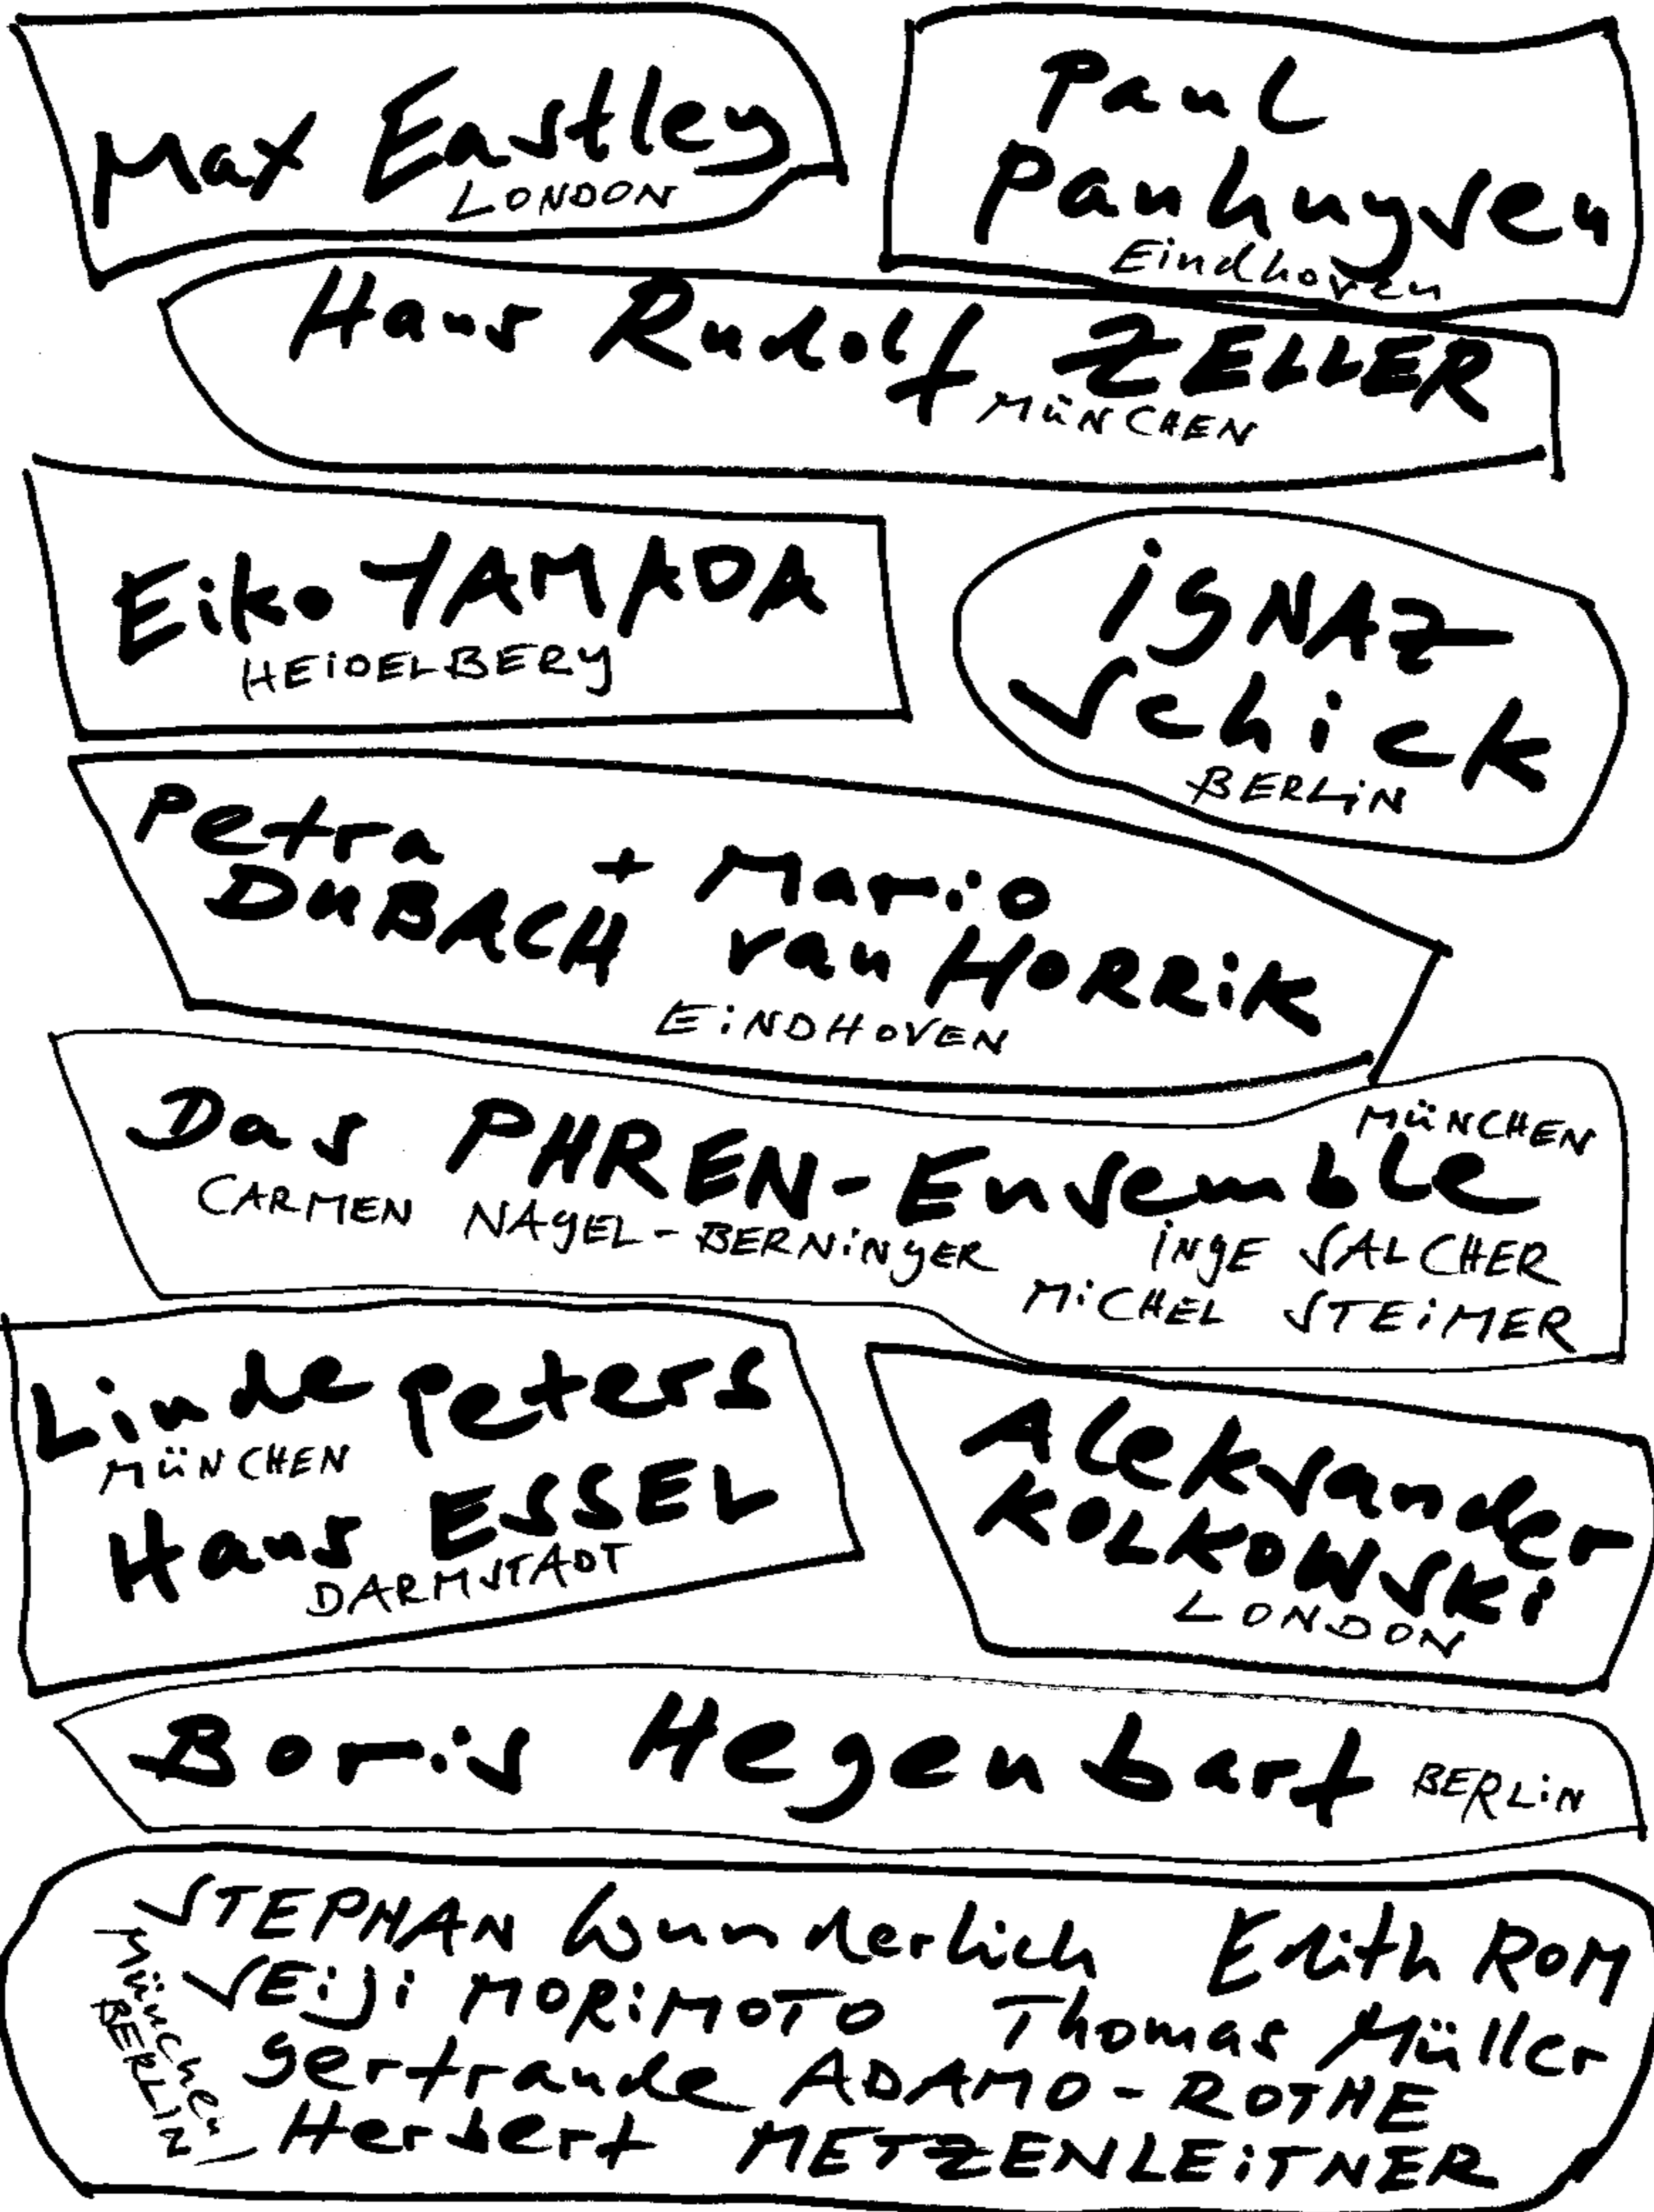 Max Eastley
LONDON
Paul
Panhuysen
Eindhoven
Hans Rudolf ZELLER
MÜNCHEN
Eiko YAMADA
HEIDELBERG
IGNAZ
Schick
BERLIN
Petra + Mario
DUBACH van HORRIK
EINDHOVEN
MÜNCHEN
Das PHREN-Ensemble
CARMEN NAGEL-BERNINGER INGE SALCHER
MICHEL STEIMER
Linde Peters
MÜNCHEN
Hans ESSEL
DARMSTADT
Aleksander
KOLKOWSKI
LONDON
Boris Hegenbart BERLIN
STEPHAN Wunderlich Edith ROM
SEIJI MORIMOTO Thomas Müller
Gertraude ADAMO-ROTHE
Herbert METZENLEITNER
München/
BERLIN